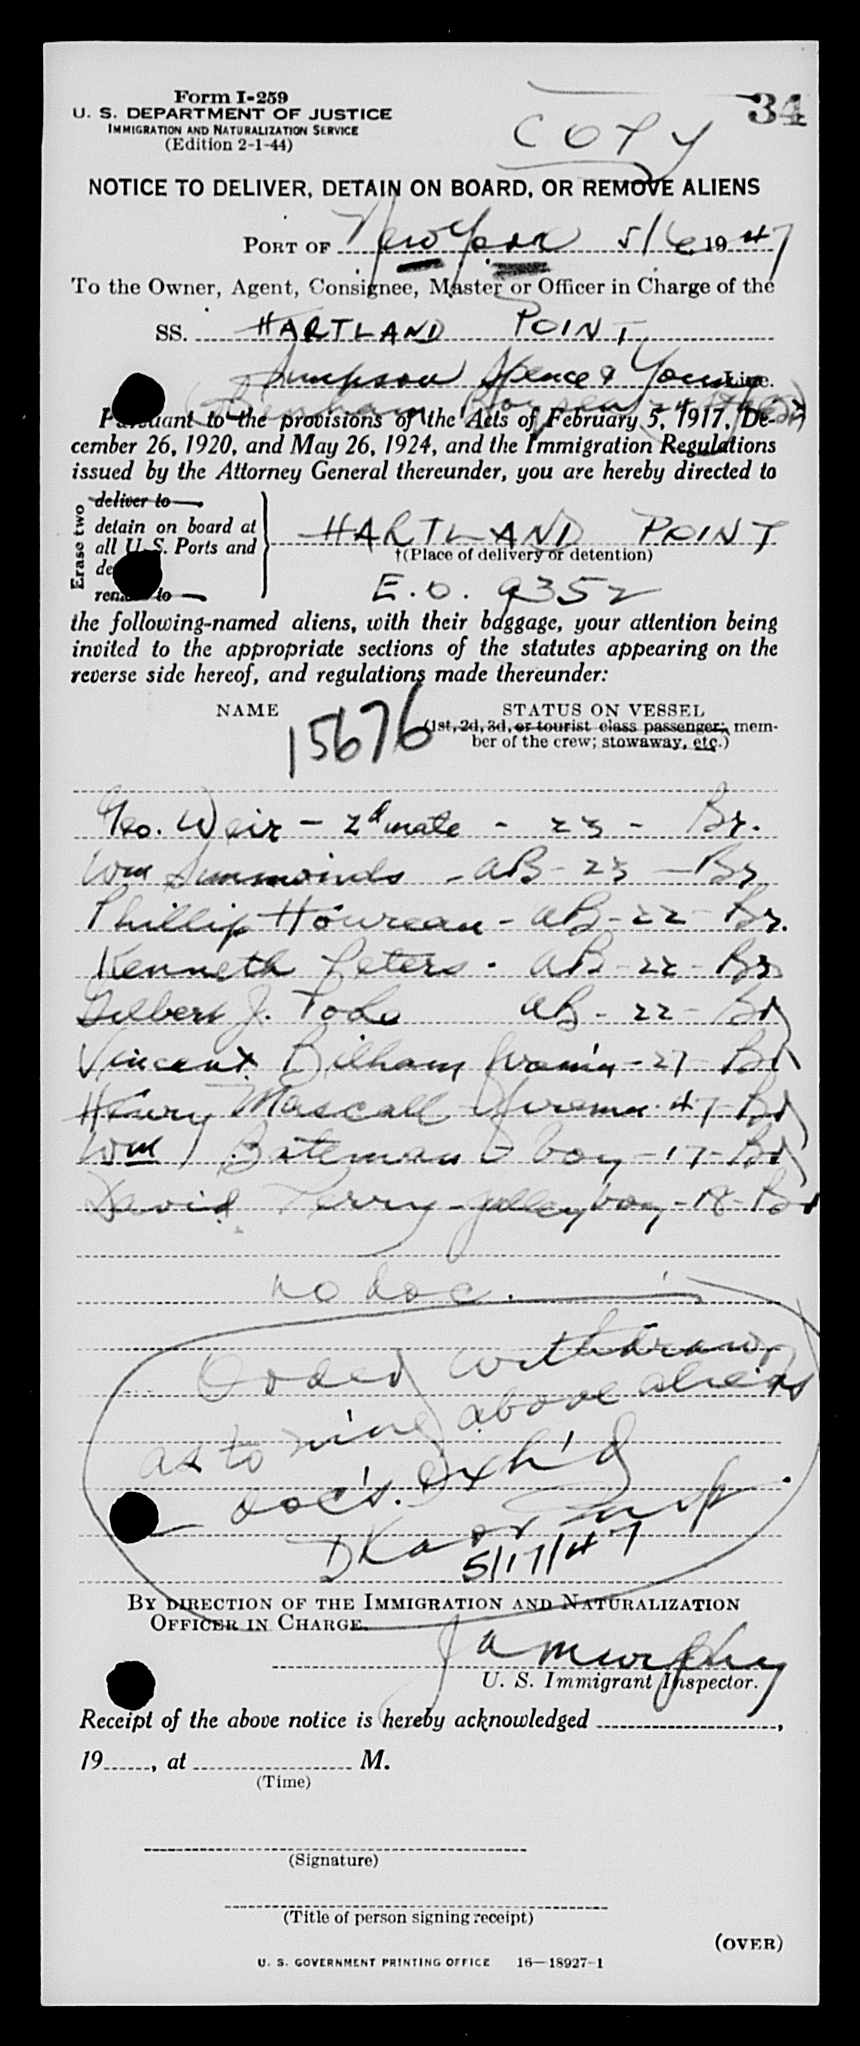 Form I-259
U. S. DEPARTMENT OF JUSTICE
IMMIGRATION AND NATURALIZATION SERVICE
(Edition 2-1-44)
COPY
34
NOTICE TO DELIVER, DETAIN ON BOARD, OR REMOVE ALIENS
PORT OF New York 5/6 1947
To the Owner, Agent, Consignee, Master or Officer in Charge of the
SS. HARTLAND POINT
Simpson Spence & Young Line.
Pursuant to the provisions of the Acts of February 5, 1917, De-
cember 26, 1920, and May 26, 1924, and the Immigration Regulations
issued by the Attorney General thereunder, you are hereby directed to
Erase two
deliver to
detain on board at
all U. S. Ports and
remove to
HARTLAND POINT
†(Place of delivery or detention)
E.O. 9352
the following-named aliens, with their baggage, your attention being
invited to the appropriate sections of the statutes appearing on the
reverse side hereof, and regulations made thereunder:
NAME
STATUS ON VESSEL
15676
(1st, 2d, 3d, or tourist class passenger; mem-
ber of the crew; stowaway, etc.)
Geo. Weir - 2d mate - 23 - Br.
Wm Simmonds - AB - 23 - Br
Phillip Houreau - AB - 22 - Br.
Kenneth Peters - AB - 22 - Br
Gilbert J. AB - 22 - Br
Vincent Bilham fireman - 27 - Br
Henry Mascall fireman 47 - Br
Wm Bateman boy - 17 - Br
David Perry - galley boy - 18 - Br
no doc.
Orded withdrawn
as to nine above aliens
doc's. Exh'd
5/17/47
BY DIRECTION OF THE IMMIGRATION AND NATURALIZATION
OFFICER IN CHARGE.
J A Murphy
U. S. Immigrant Inspector.
Receipt of the above notice is hereby acknowledged ,
19 , at M.
(Time)
(Signature)
(Title of person signing receipt)
(OVER)
U. S. GOVERNMENT PRINTING OFFICE 16—18927-1